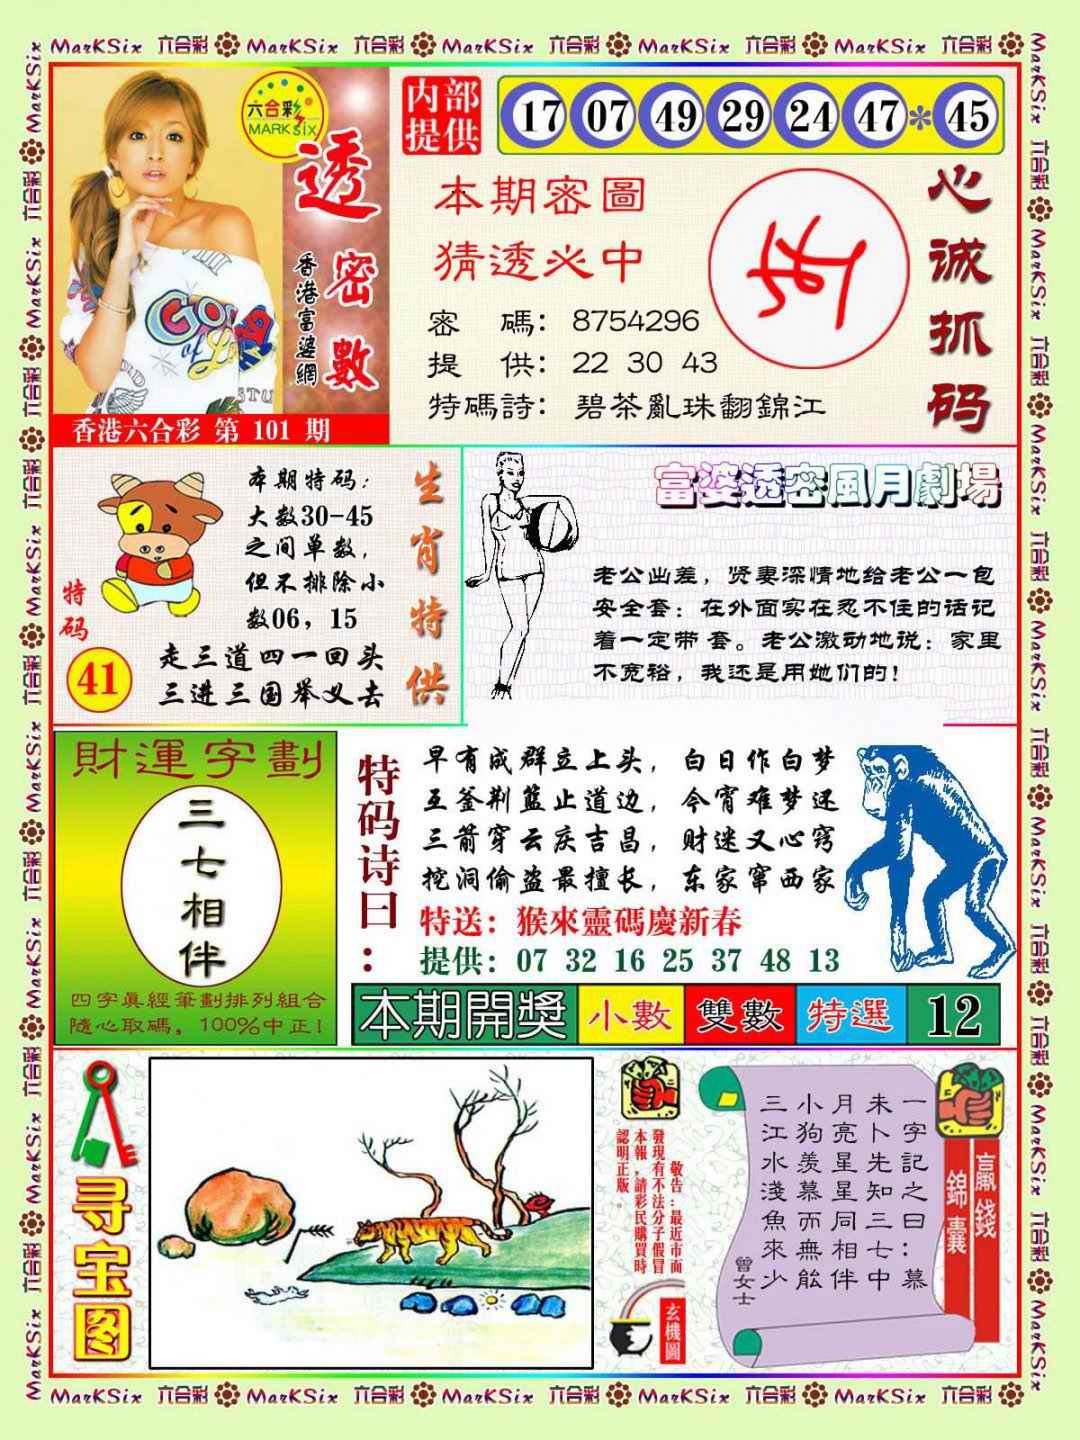 MarKSix 六合彩 MarKSix 六合彩 MarKSix 六合彩 MarKSix 六合彩 MarKSix 六合彩
六合彩
MARK SIX
透密數
香港富婆網
香港六合彩 第 101 期
内部
提供
17 07 49 29 24 47 * 45
本期密圖
猜透必中
密 碼: 8754296
提 供: 22 30 43
特碼詩: 碧茶亂珠翻錦江
心诚抓码
本期特码:
大数30-45
之间单数,
但不排除小
数06, 15
生肖特供
特码
41
走三道四一回头
三进三国举义去
富婆透密風月劇場
老公出差, 贤妻深情地给老公一包
安全套: 在外面实在忍不住的话记
着一定带 套。老公激动地说: 家里
不宽裕, 我还是用她们的!
財運字劃
三七相伴
四字眞經筆劃排列組合
隨心取碼。100%中正!
特码诗曰:
早有成群立上头, 白日作白梦
互釜荆篮止道边, 今宵难梦还
三箭穿云庆吉昌, 财迷又心窍
挖洞偷盗最擅长, 东家窜西家
特送: 猴來靈碼慶新春
提供: 07 32 16 25 37 48 13
本期開獎 小數 雙數 特選 12
寻宝图
敬告:最近市面
發現有不法分子假冒
本報,請彩民購買時
認明正版。
玄機圖
贏錢
錦囊
一字記之曰:慕
未卜先知三七中
月亮星星同相伴
小狗羨慕而無能
三江水淺魚來少
曾女士
MarKSix 六合彩 MarKSix 六合彩 MarKSix 六合彩 MarKSix 六合彩 MarKSix 六合彩